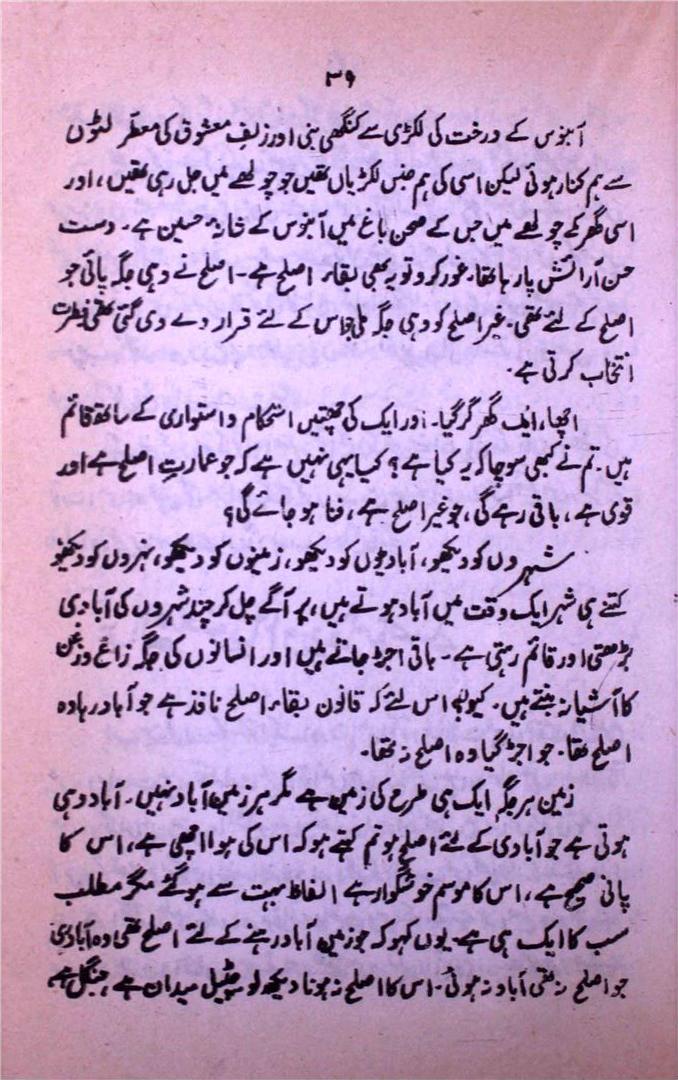 ۳۹
آبنوس کے درخت کی لکڑی سے کنگھی بنی اور زلفِ معشوق کی معطر لٹوں
سے ہم کنار ہوئی لیکن اسی کی ہم جنس لکڑیاں تھیں جو چولھے میں جل رہی تھیں، اور
اسی گھر کے چولھے میں جس کے صحن باغ میں آبنوس کے شانۂ حسین ہے۔ دست
حسن آرائش پا رہا تھا۔ غور کرو تو یہ بھی بقاء اصلح ہے۔ اصلح نے وہی جگہ پائی جو
اصلح کے لئے تھی۔ غیر اصلح کو وہی جگہ ملی جو اس کے لئے قرار دے دی گئی تھی فطرت
انتخاب کرتی ہے۔
اچھا، ایک گھر گر گیا۔ اور ایک کی چھتیں استحکام و استواری کے ساتھ قائم
ہیں۔ تم نے کبھی سوچا کہ یہ کیا ہے؟ کیا یہی نہیں ہے کہ جو عمارتِ اصلح ہے اور
قوی ہے، باقی رہے گی، جو غیر اصلح ہے، فنا ہو جائے گی؟
شہروں کو دیکھو، آبادیوں کو دیکھو، زمینوں کو دیکھو، نہروں کو دیکھو
کتنے ہی شہر ایک وقت میں آباد ہوتے ہیں، پر آگے چل کر چند شہروں کی آبادی
بڑھتی اور قائم رہتی ہے۔ باقی اجڑ جاتے ہیں اور انسانوں کی جگہ زاغ و زغن
کا آشیانہ بنتے ہیں۔ کیوں؟ اس لئے کہ قانون بقاء اصلح نافذ ہے جو آباد رہا وہ
اصلح تھا۔ جو اجڑ گیا وہ اصلح نہ تھا۔
زمین ہر جگہ ایک ہی طرح کی زمین ہے مگر ہر زمین آباد نہیں۔ آباد وہی
ہوتی ہے جو آبادی کے لئے اصلح ہو تم کہتے ہو کہ اس کی ہوا اچھی ہے، اس کا
پانی صحیح ہے، اس کا موسم خوشگوار ہے الفاظ بہت سے ہو گئے مگر مطلب
سب کا ایک ہی ہے۔ یوں کہو کہ جو زمین آباد رہنے کے لئے اصلح تھی وہ آباد ہوئی
جو اصلح نہ تھی آباد نہ ہوئی۔ اس کا اصلح نہ ہونا دیکھ لو چٹیل میدان ہے، جنگل ہے